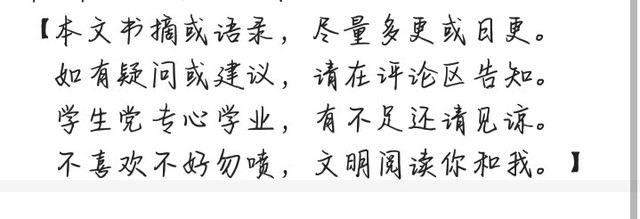 【本文书摘或语录，尽量多更或日更。
如有疑问或建议，请在评论区告知。
学生党专心学业，有不足还请见谅。
不喜欢不好勿喷，文明阅读你和我。】